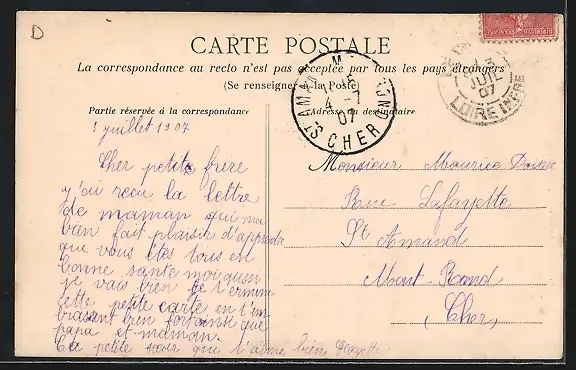 D
CARTE POSTALE
La correspondance au recto n'est pas acceptée par tous les pays étrangers
(Se renseigner à la Poste)
Partie réservée à la correspondance
Adresse du destinataire
3 juillet 1907
Cher petite frere
y'ai recu la lettre
de maman qui ma
bien fait plaisir d'apprendre
que vous etes tous en
bonne sante moi aussi
je vais bien je termine
cette petite carte en t'em
brassant bien fort ainsi que
papa et maman.
Ta petite soeur qui t'aime bien
Monsieur Maurice
Rue Lafayette
St Amand
Mont-Rond
(Cher)
ST AMAND MONT
4 -7
07
CHER
3
JUIL
07
LOIRE INFRE